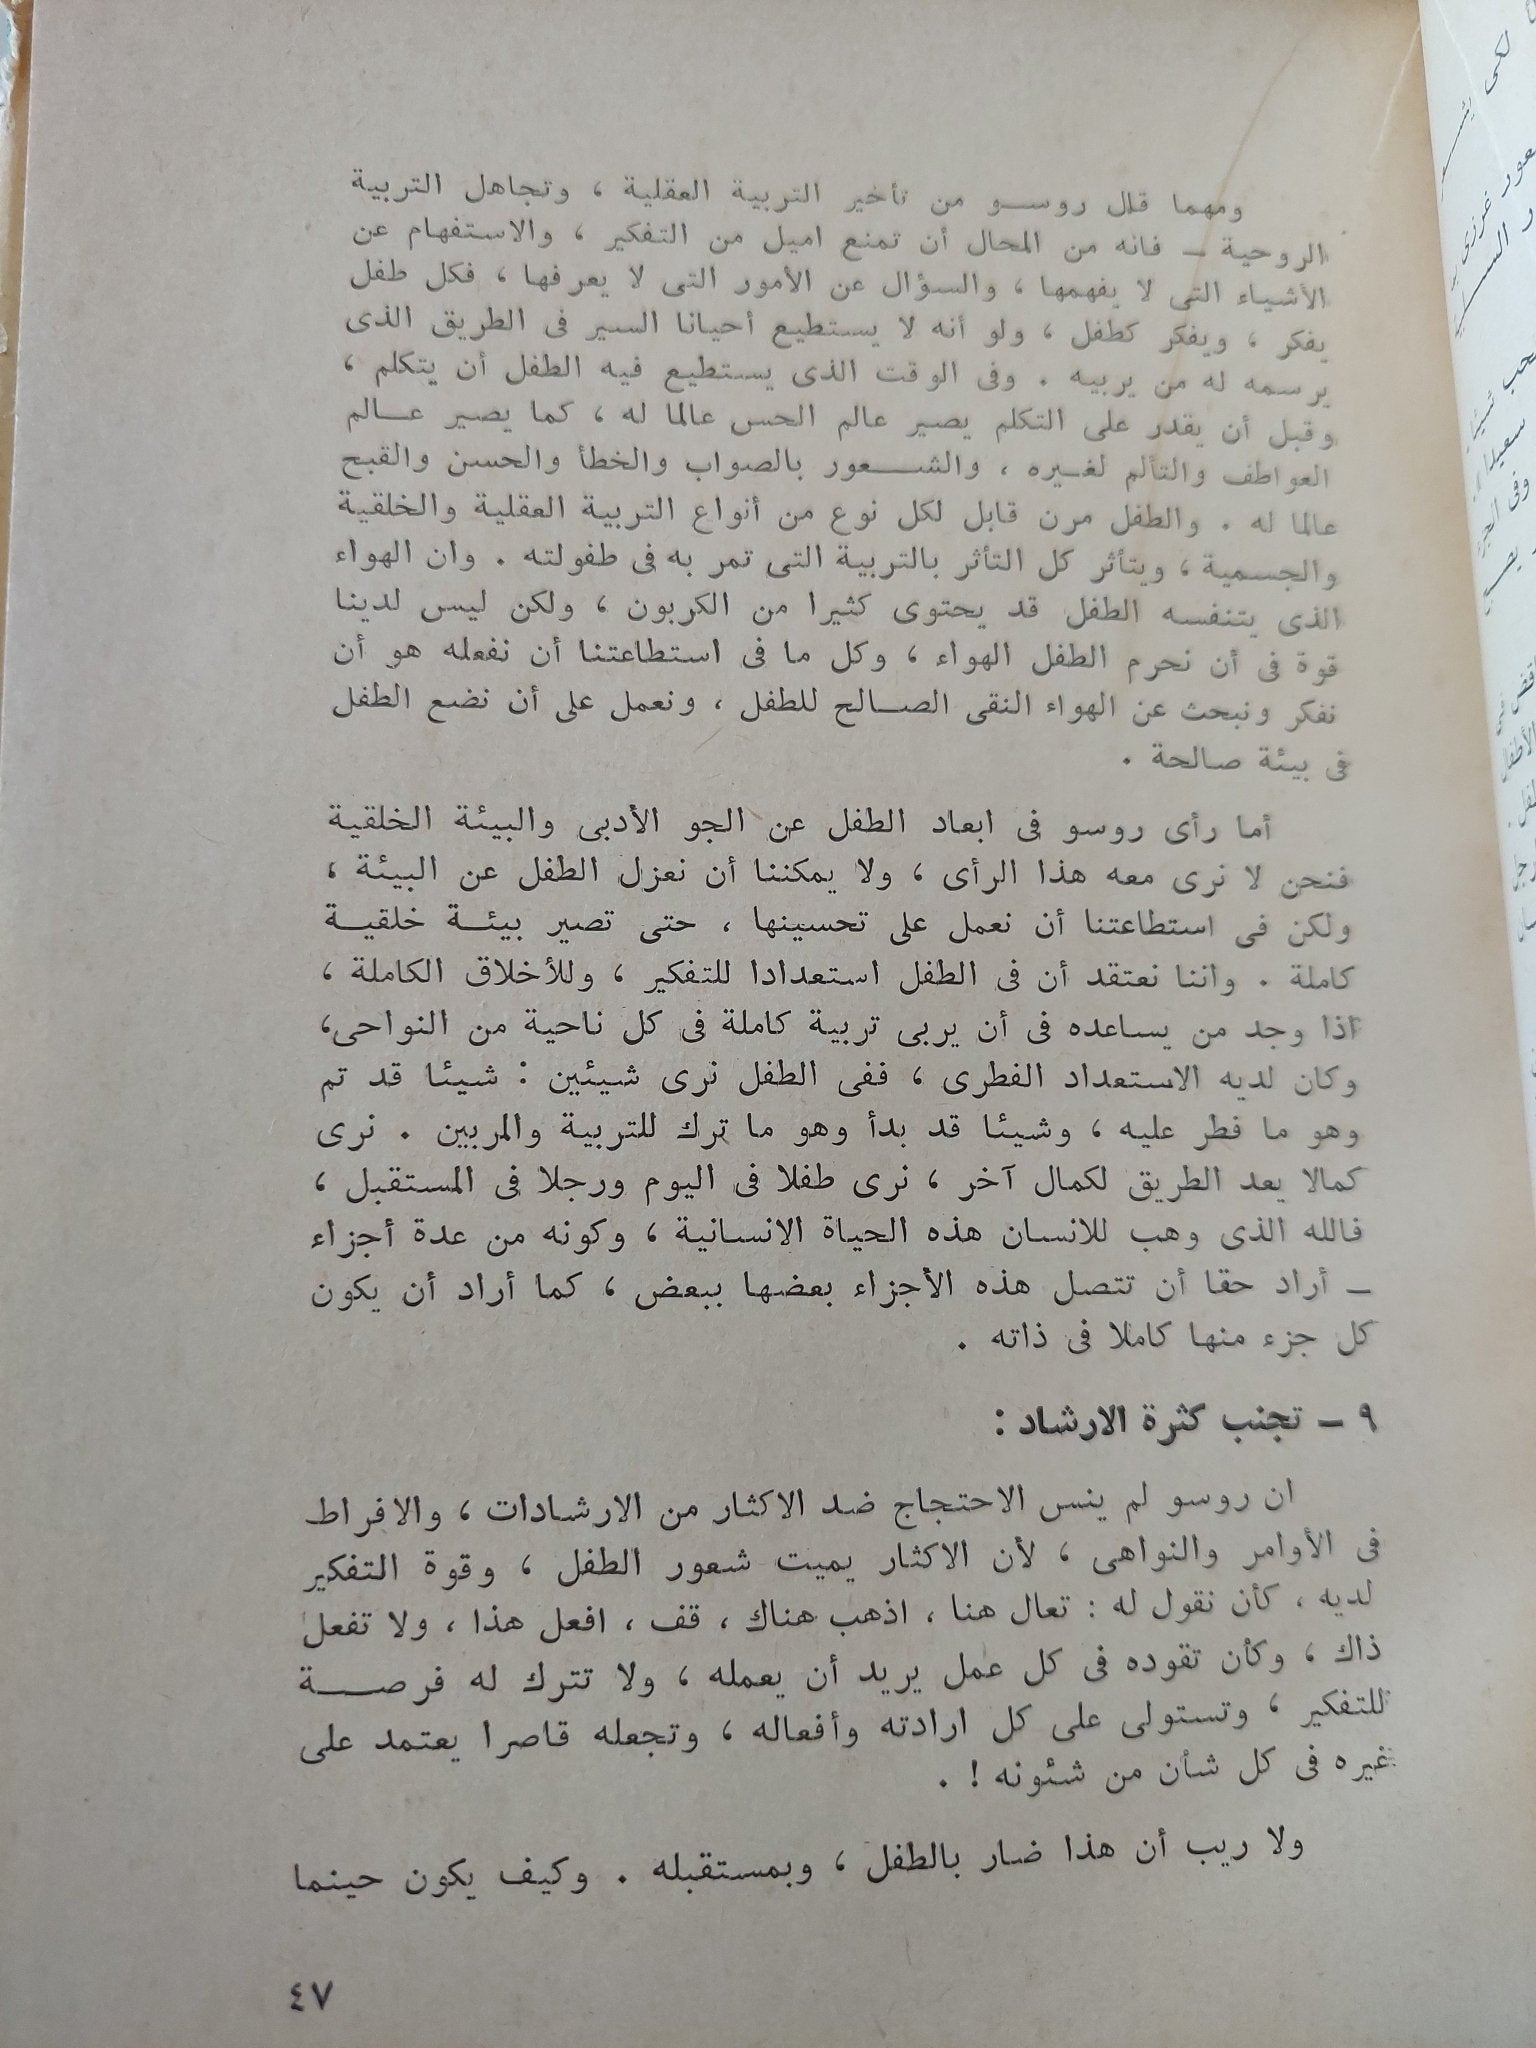 ومهما قال روسو من تأخير التربية العقلية ، وتجاهل التربية
الروحية – فانه من المحال أن تمنع اميل من التفكير ، والاستفهام عن
الأشياء التى لا يفهمها ، والسؤال عن الأمور التى لا يعرفها ، فكل طفل
يفكر ، ويفكر كطفل ، ولو أنه لا يستطيع أحيانا السير فى الطريق الذى
يرسمه له من يربيه . وفى الوقت الذى يستطيع فيه الطفل أن يتكلم ،
وقبل أن يقدر على التكلم يصير عالم الحس عالما له ، كما يصير عالم
العواطف والتألم لغيره ، والشعور بالصواب والخطأ والحسن والقبح
عالما له . والطفل مرن قابل لكل نوع من أنواع التربية العقلية والخلقية
والجسمية ، ويتأثر كل التأثر بالتربية التى تمر به فى طفولته . وان الهواء
الذى يتنفسه الطفل قد يحتوى كثيرا من الكربون ، ولكن ليس لدينا
قوة فى أن نحرم الطفل الهواء ، وكل ما فى استطاعتنا أن نفعله هو أن
نفكر ونبحث عن الهواء النقى الصالح للطفل ، ونعمل على أن نضع الطفل
فى بيئة صالحة .
أما رأى روسو فى ابعاد الطفل عن الجو الأدبى والبيئة الخلقية
فنحن لا نرى معه هذا الرأى ، ولا يمكننا أن نعزل الطفل عن البيئة ،
ولكن فى استطاعتنا أن نعمل على تحسينها ، حتى تصير بيئة خلقية
كاملة . واننا نعتقد أن فى الطفل استعدادا للتفكير ، وللأخلاق الكاملة ،
اذا وجد من يساعده فى أن يربى تربية كاملة فى كل ناحية من النواحى،
وكان لديه الاستعداد الفطرى ، ففى الطفل نرى شيئين : شيئا قد تم
وهو ما فطر عليه ، وشيئا قد بدأ وهو ما ترك للتربية والمربين . نرى
كمالا يعد الطريق لكمال آخر ، نرى طفلا فى اليوم ورجلا فى المستقبل ،
فالله الذى وهب للانسان هذه الحياة الانسانية ، وكونه من عدة أجزاء
– أراد حقا أن تتصل هذه الأجزاء بعضها ببعض ، كما أراد أن يكون
كل جزء منها كاملا فى ذاته .
٩ – تجنب كثرة الارشاد :
ان روسو لم ينس الاحتجاج ضد الاكثار من الارشادات ، والافراط
فى الأوامر والنواهى ، لأن الاكثار يميت شعور الطفل ، وقوة التفكير
لديه ، كأن نقول له : تعال هنا ، اذهب هناك ، قف ، افعل هذا ، ولا تفعل
ذاك ، وكأن تقوده فى كل عمل يريد أن يعمله ، ولا تترك له فرصة
للتفكير ، وتستولى على كل ارادته وأفعاله ، وتجعله قاصرا يعتمد على
غيره فى كل شأن من شئونه ! .
ولا ريب أن هذا ضار بالطفل ، وبمستقبله . وكيف يكون حينما
٤٧